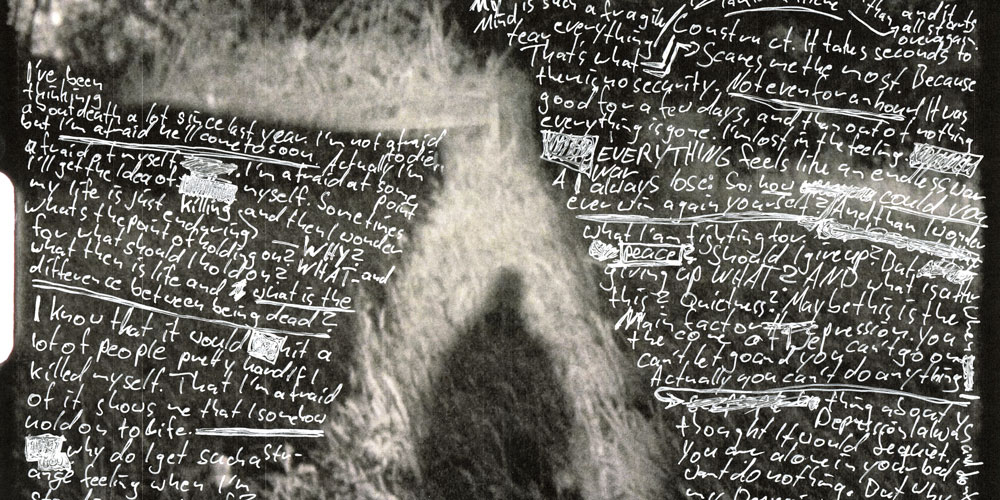 I've been
thinking
about death a lot since last year. I'm not afraid
but I'm afraid he'll come to soon. Actually to die.
afraid at myself. I'm afraid at some
I'll get the idea of myself. Sometimes point
my life is just killing and then I wonder
what's the point of holding on? – WHY?
for what should I hold on? WHAT – and
what then is life and what is the
difference between being dead?
I know that it would hit a
lot of people pretty hard if I
killed myself. That I'm afraid
of it shows me that I somehow
hold on to life.
why do I get such a stra-
ange feeling when I'm
My is such a fragile
Mind everything
tear
That's what
construct. It takes seconds to
and it starts
all
over again.
Scares me the most. Because
there is no security, Not even for an hour! It was
good for a few days, and than out of nothing
everything is gone. I'm lost in the feeling.
EVERYTHING feels like an endless war
A war
I always lose: So, how could you
ever win again yourself? And than I wonder
what I am fighting for.
peace Should I give up? But
giving up WHAT? AND what is after
this? Quietness? Maybe this is the
Main factor pression. You
the core at Dep can't go on
can't let go and you
Actually you can't do anything!
thing about
Depression always
thought It would be quiet.
You are alone in your bed
want do nothing. But why
my Depression